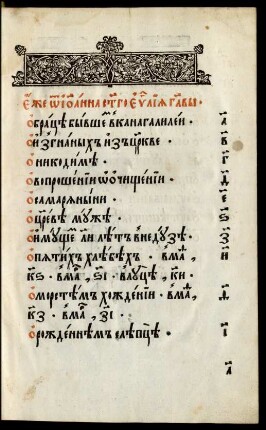 Е҆́же ѿ і҆ѡа́нна ст҃го є҆ѵⷢ҇лїѧ главы̀ ·
О бра́цѣ бы́вшемъ в кана галиле́и · а҃
О и҆згна́ныхъ и҆зъ цр҃кве · в҃
О никоди́мѣ · г҃
О вопроше́нїи ѡ҆ ѡ҆чище́нїи · д҃
О самарѧны́ни · є҃
О цр҃евѣ мꙋ́жѣ · ѕ҃
О и҆мꙋ́щемъ л҃и лѣ́тъ в недꙋ́зѣ · з҃
О пѧти́хъ хлѣ́бѣхъ · в маⷴ҇, и҃
к҃ѕ · в маⷬ҇, ѕ҃і · в лꙋцѣ, к҃и
О морсте́мъ хожде́нїи · в маⷴ҇, ѳ҃
к҃з · в маⷬ҇, з҃і ·
О рожде́ннемъ слѣпцѣ̀ · і҃
а҃і